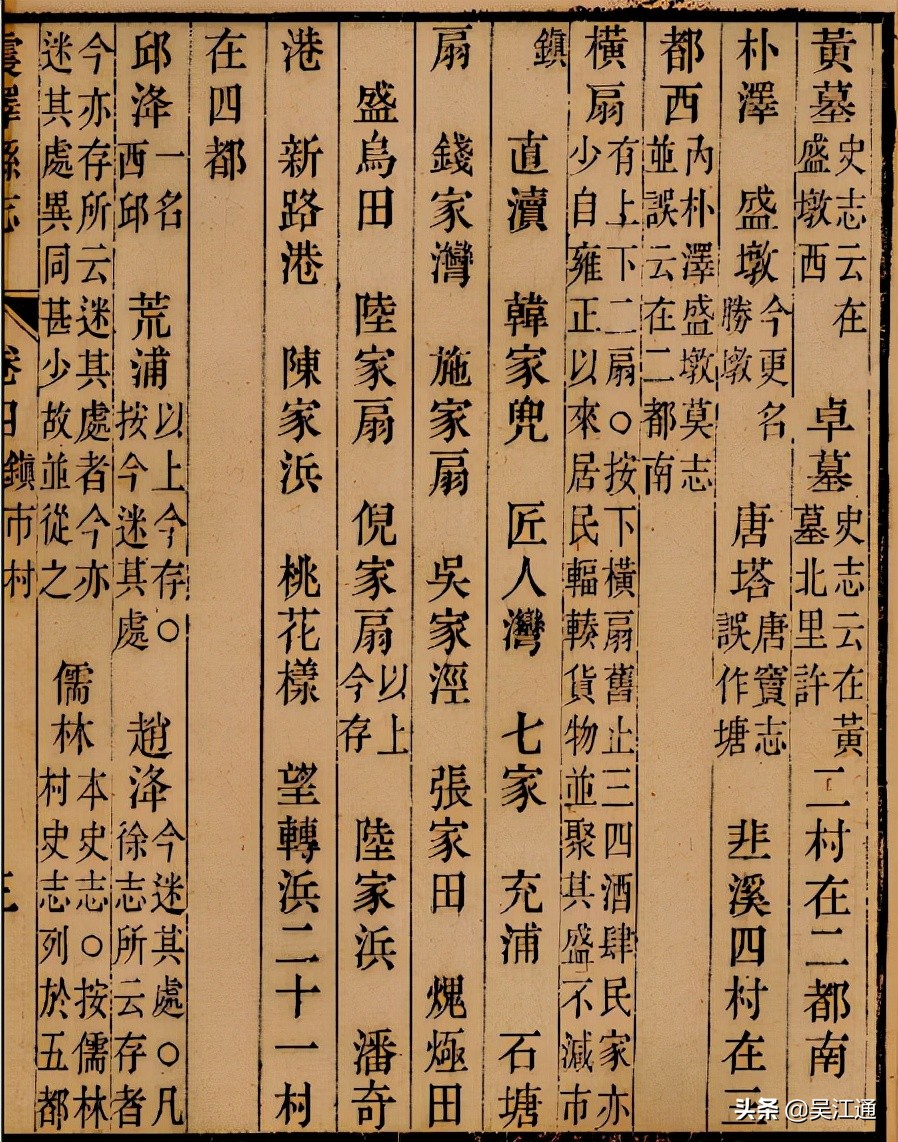 黃墓 史志云在盛墩西 卓墓 史志云在黃墓北里許 二村在二都南
朴澤 盛墩 今更名勝墩 唐塔 唐竇志誤作塘 韭溪四村在三
都西 內朴澤盛墩莫志並誤云在二都南
橫扇 有上下二扇○按下橫扇舊止三四酒肆民家亦少自雍正以來居民輻輳貨物並聚其盛不減市
鎮 直瀆 韓家兜 匠人灣 七家 充浦 石塘
扇 錢家灣 施家扇 吳家涇 張家田 田
盛鳥田 陸家扇 倪家扇 以上今存 陸家浜 潘奇
港 新路港 陳家浜 桃花樣 望轉浜二十一村
在四都
邱洚 一名西邱 荒浦 以上今存○按今迷其處 趙洚 今迷其處○凡徐志所云存者
今亦存所云迷其處者今亦迷其處異同甚少故並從之 儒林 本史志○按儒林村史志列於五都
震澤縣志 卷四 鎮市村
头条 @吴江通